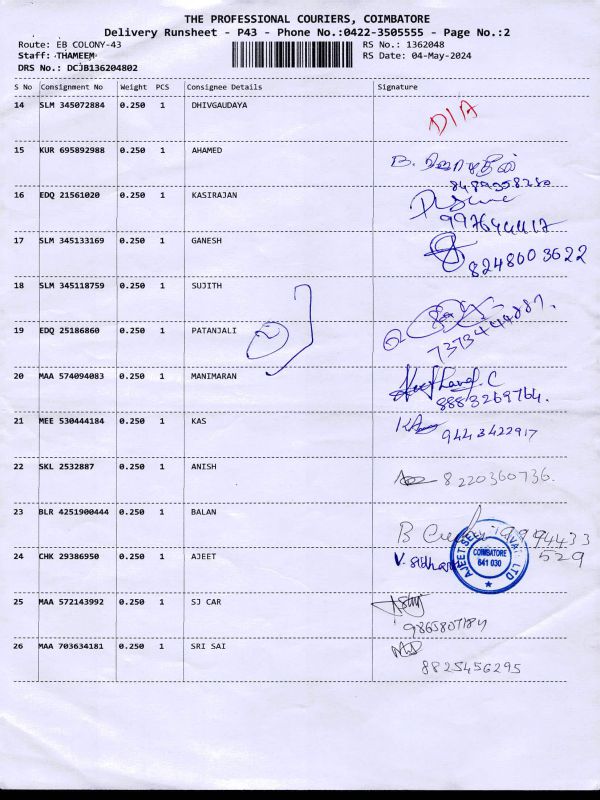 THE PROFESSIONAL COURIERS, COIMBATORE
Delivery Runsheet - P43 - Phone No.:0422-3505555 - Page No.:2
Route: EB COLONY-43 RS No.: 1362048
Staff: THAMEEM RS Date: 04-May-2024
DRS No.: DCJB136204802
S No Consignment No Weight PCS Consignee Details Signature
14 SLM 345072884 0.250 1 DHIVGAUDAYA
D/A
15 KUR 695892988 0.250 1 AHAMED
B.
8489358250
16 EDQ 21561020 0.250 1 KASIRAJAN
17 SLM 345133169 0.250 1 GANESH
8248603622
18 SLM 345118759 0.250 1 SUJITH
19 EDQ 25186860 0.250 1 PATANJALI
2
20 MAA 574094083 0.250 1 MANIMARAN
8883269764.
21 MEE 530444184 0.250 1 KAS
9443422917
22 SKL 2532887 0.250 1 ANISH
8220360736.
23 BLR 4251900444 0.250 1 BALAN
B 9994433
529
24 CHK 29386950 0.250 1 AJEET
V. sidhar
COIMBATORE
641 030
25 MAA 572143992 0.250 1 SJ CAR
26 MAA 703634181 0.250 1 SRI SAI
8825456295